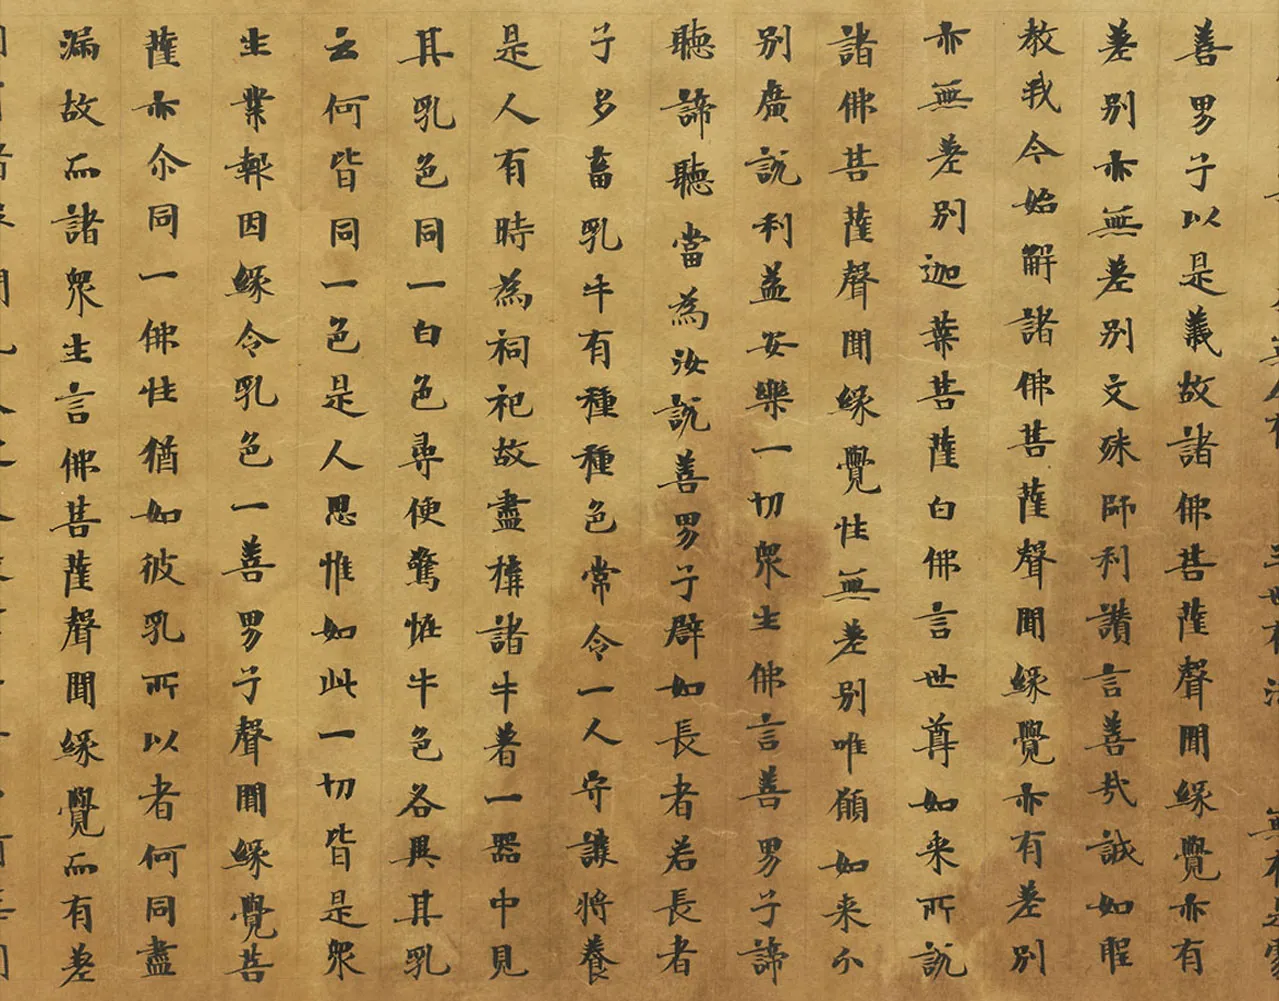 善男子以是義故諸佛菩薩聲聞緣覺亦有
差別亦無差別文殊師利讚言善哉誠如聖
教我今始解諸佛菩薩聲聞緣覺亦有差別
亦無差別迦葉菩薩白佛言世尊如来所說
諸佛菩薩聲聞緣覺性無差別唯願如来分
別廣說利益安樂一切眾生佛言善男子諦
聽諦聽當為汝說善男子辟如長者若長者
子多畜乳牛有種種色常令一人守護將養
是人有時為祠祀故盡構諸牛著一器中見
其乳色同一白色尋便驚怪牛色各異其乳
云何皆同一色是人思惟如此一切皆是眾
生業報因緣令乳色一善男子聲聞緣覺菩
薩亦尒同一佛性猶如彼乳所以者何同盡
漏故而諸眾生言佛菩薩聲聞緣覺而有差